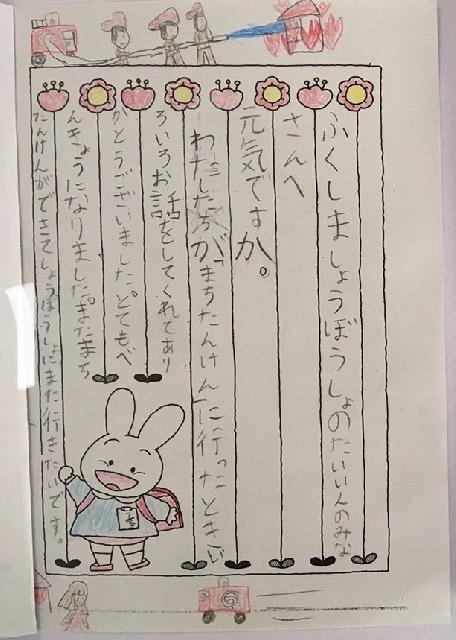 ふくしましょうぼうしょのたいいんのみな
さんへ
元気ですか。
わたしたちが、まちたんけんに行ったときい
ろいろお話をしてくれてあり
がとうございました。とてもべ
んきょうになりました。またまち
たんけんができてしょうぼうしょにまた行きたいです。
6